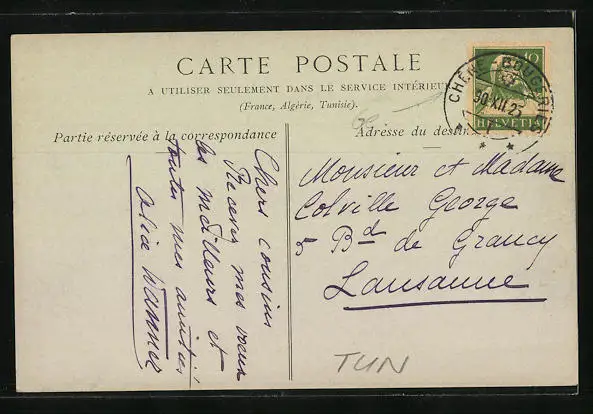 CARTE POSTALE
A UTILISER SEULEMENT DANS LE SERVICE INTÉRIEUR
(France, Algérie, Tunisie).
Partie réservée à la correspondance
Adresse du destin
10
HELVETIA
CHÊNE-BOUGERIES
30.XII.2
Chers cousins
Recevez mes voeux
les meilleurs et
toutes mes amitiés
Alice Wanner
Monsieur et Madame
Colville George
5 Bd de Grancy
Lausanne
TUN